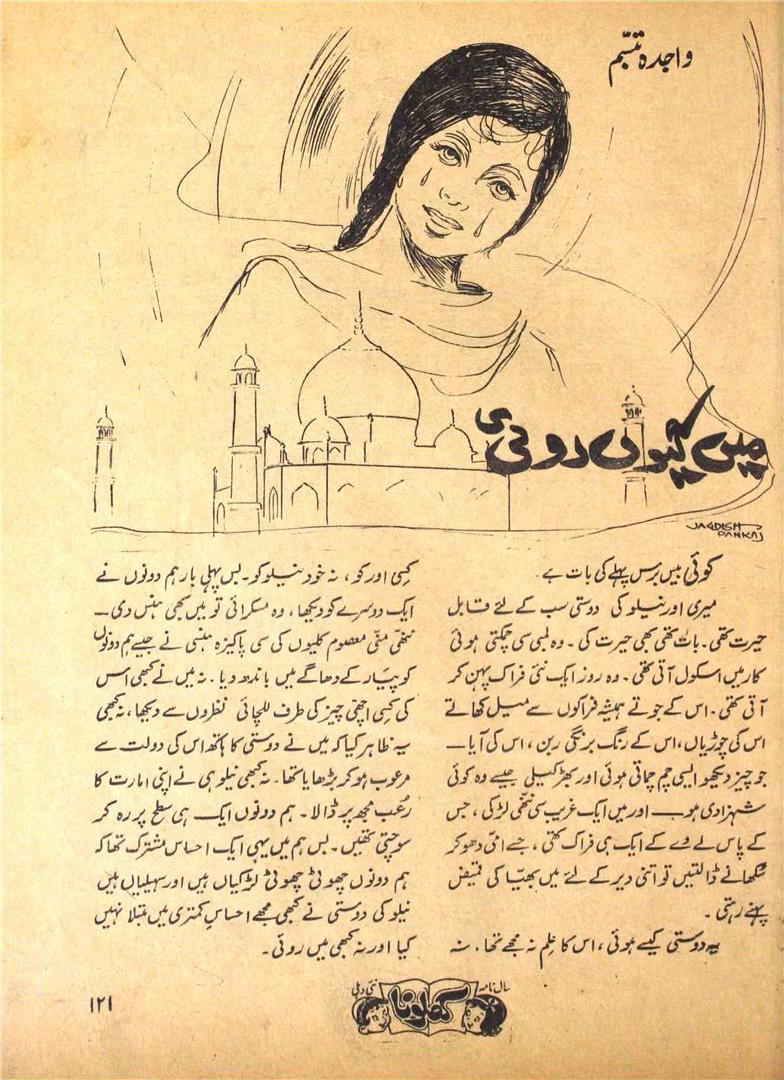 واجدہ تبسّم
میں کیوں روئی
JAGDISH
PANKAJ
کوئی بیس برس پہلے کی بات ہے۔
میری اور نیلو کی دوستی سب کے لئے قابل
حیرت تھی۔ بات تھی بھی حیرت کی۔ وہ لمبی سی چمکتی ہوئی
کار میں اسکول آتی تھی۔ وہ روز ایک نئی فراک پہن کر
آتی تھی۔ اس کے جوتے ہمیشہ فراکوں سے میل کھاتے
اس کی چوڑیاں، اس کے رنگ برنگی ربن، اس کی آیا—
جو چیز دیکھو ایسی چم چماتی ہوئی اور بھڑکیلی جیسے وہ کوئی
شہزادی ہو— اور میں ایک غریب سی ننھی لڑکی، جس
کے پاس لے دے کے ایک ہی فراک تھی، جسے امّی دھو کر
سُکھانے ڈالتیں تو اتنی دیر کے لئے میں بھیّا کی قمیض
پہنے رہتی۔
یہ دوستی کیسے ہوئی، اس کا عِلم نہ مجھے تھا، نہ
کسی اور کو، نہ خود نیلو کو۔ بس پہلی بار ہم دونوں نے
ایک دوسرے کو دیکھا، وہ مسکرائی تو میں بھی ہنس دی—
ننھی منّی معصوم کلیوں کی سی پاکیزہ ہنسی نے جیسے ہم دونوں
کو پیار کے دھاگے میں باندھ دیا۔ نہ میں نے کبھی اس
کی کسی اچھی چیز کی طرف للچائی نظروں سے دیکھا، نہ کبھی
یہ ظاہر کیا کہ میں نے دوستی کا ہاتھ اس کی دولت سے
مرعوب ہو کر بڑھایا تھا۔ نہ کبھی نیلو ہی نے اپنی امارت کا
رُعب مجھ پر ڈالا۔ ہم دونوں ایک ہی سطح پر رہ کر
سوچتی تھیں۔ بس ہم میں یہی ایک احساس مشترک تھا کہ
ہم دونوں چھوٹی چھوٹی لڑکیاں ہیں اور سہیلیاں ہیں
نیلو کی دوستی نے کبھی مجھے احساسِ کمتری میں مبتلا نہیں
کیا اور نہ کبھی میں روئی۔
سال نامہ کھلونا نئی دہلی
۱۲۱